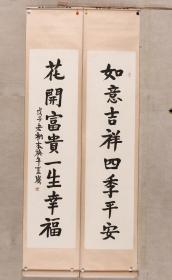 如意吉祥四季平安
花開富貴一生幸福